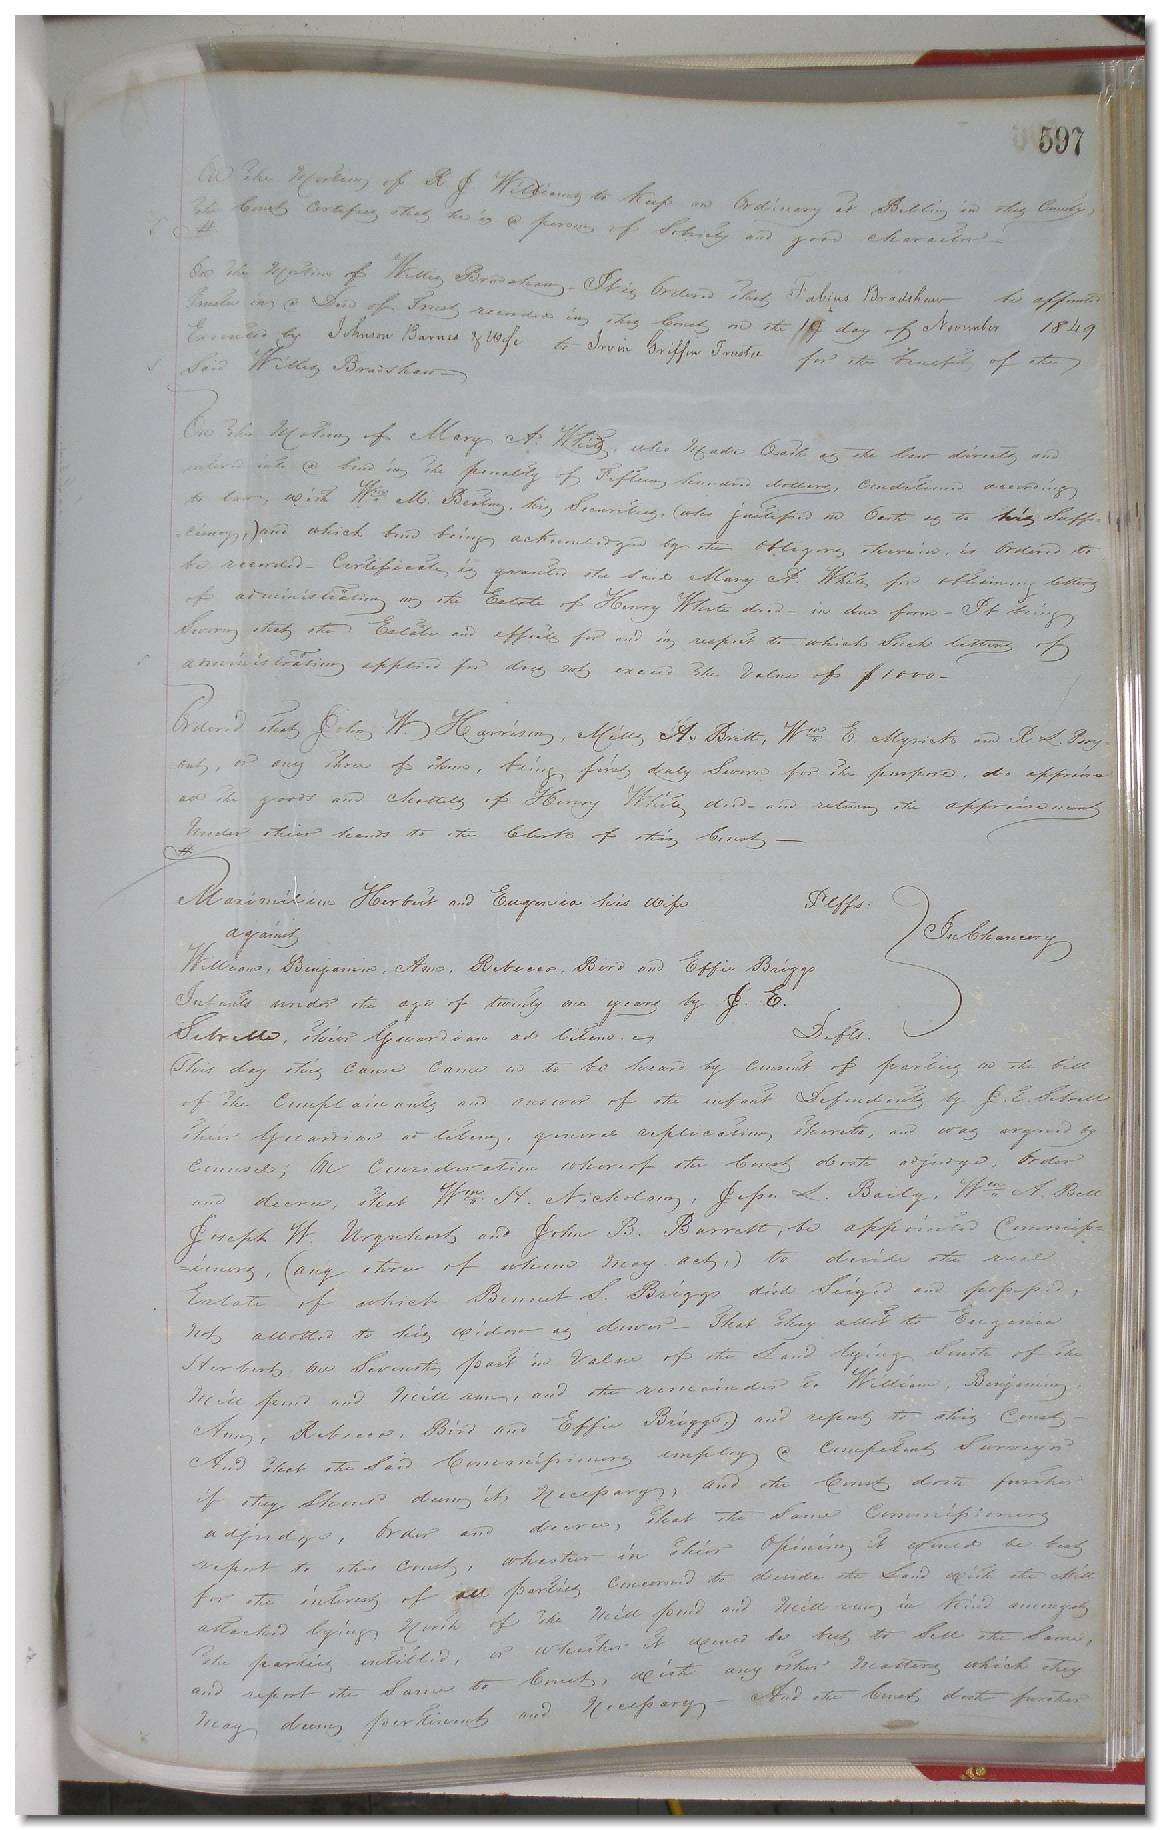 597
On the Motion of R. J. Williams to Keep an Ordinary at Bellin in this County,
the Court Certifies that he is a person of Sobriety and good character —
#
On the Motion of Willis Bradshaw — It is Ordered that Fabius Bradshaw be appointed
Trustee in a Deed of Trust recorded in this Court on the 19 day of November 1849
Executed by Johnson Barnes & Wife to Irvin Griffin Trustee for the benefit of the
Said Willis Bradshaw —
On the Motion of Mary A. White, who Made Oath as the law directs, and
entered into a bond in the penalty of Fifteen hundred dollars, Conditioned according
to law, with Wm M. Beaton, his Securities, (who justified on Oath as to his Suffi-
-ciency,) and which bond being acknowledged by the Obligors therein, is Ordered to
be recorded — Certificate is granted the said Mary A. White for obtaining letters
of administration on the Estate of Henry White decd — in due form — It being
Sworn that the Estate and effects for and in respect to which Such letters of
administration applied for does not exceed the Value of $1000 —
Ordered that John W. Harrison, Mills A. Britt, Wm E. Myrick and R. L.
or any three of them, being first duly Sworn for the purpose, do appraise
all the goods and chattels of Henry White decd and return the appraisement
Under their hands to the Clerk of this Court —
#
Maximilian Herbert and Eugenia his wife Plffs.
against In Chancery
William, Benjamin, Ann, Rebecca, Bird and Effie Briggs
Infants under the age of twenty one years by J. E.
Sebrelle, their Guardian ad litem Defts.
This day this cause came on to be heard by consent of parties on the bill
of the Complainants and answer of the infant Defendants by J. E. Sebrell
their Guardian ad litem, general replication thereto, and was argued by
Counsel; On Consideration whereof the Court doth adjudge, Order
and decree, that Wm H. Nicholson, Jesse L. Baily, Wm A. Bell
Joseph W. Urquhart and John B. Barrett, be appointed Commiss=
=ioners, (any three of whom may act,) to divide the real
Estate of which Bennet S. Briggs died Seized and possessed,
not allotted to his widow as dower — That they allot to Eugenia
Herbert one Seventh part in Value of the Land lying South of the
Mill pond and Mill run, and the remainder to William, Benjamin,
Ann, Rebecca, Bird and Effie Briggs,) and report to this Court —
And that the Said Commissioners employ a competent Surveyor
if they should deem it Necessary, and the Court doth further
adjudge, Order and decree, that the Same Commissioners
report to this Court, whether in their Opinion it would be best
for the interest of all parties Concerned to divide the Land with the Mill
attached lying North of the Mill pond and Mill run in kind amongst
the parties entitled, or whether it would be best to Sell the Same,
and report the Same to Court, with any other Matters which they
May deem pertinent and Necessary — And the Court doth further